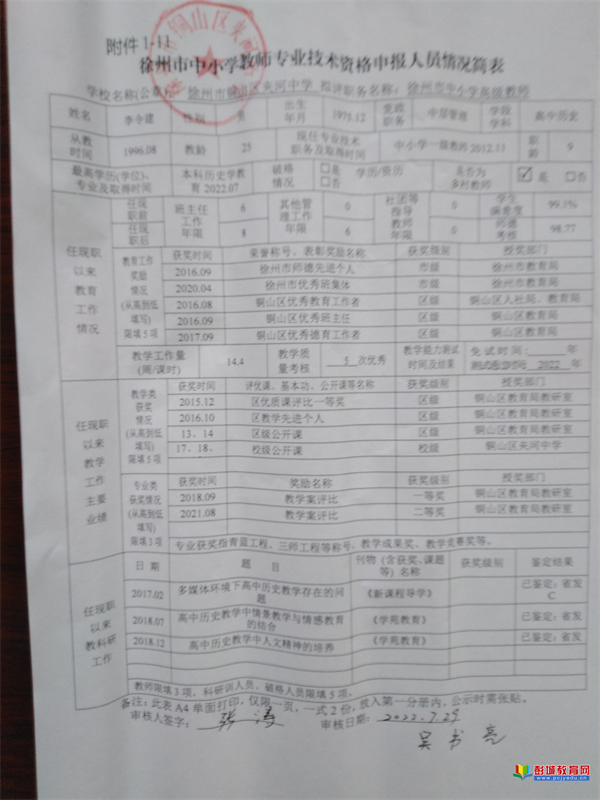 附件1-11
徐州市中小学教师专业技术资格申报人员情况简表
学校名称(公章): 徐州市铜山区夹河中学 拟评职务名称: 徐州市中小学高级教师
姓名 李令建 性别 男 出生年月 1975.12 党政职务 中层管理 学段学科 高中历史
从教时间 1996.08 教龄 25 现任专业技术职务及取得时间 中小学一级教师 2012.11 职龄 9
最高学历(学位)、专业及取得时间 本科历史学教育 2022.07 破格情况 □是 □否 学历/资历 是否为乡村教师 ☑是 □否
任现职以来教育工作情况
任现职前 班主任工作年限 6 其他管理工作年限 0 社团等指导教师年限 0 学生满意度 99.1%
任现职后 8 6 0 师德考核 98.77
教育工作奖励情况(从高到低填写)限填5项
获奖时间 荣誉称号、表彰奖励名称 获奖级别 授奖部门
2016.09 徐州市师德先进个人 市级 徐州市教育局
2020.04 徐州市优秀班集体 市级 徐州市教育局
2016.08 铜山区优秀教育工作者 区级 铜山区人社局、教育局
2016.09 铜山区优秀班主任 区级 铜山区教育局
2017.09 铜山区优秀德育工作者 区级 铜山区教育局
教学工作量(周/课时) 14.4 教学质量考核 5 次优秀 教学能力测试时间及结果 免试时间: 年
2022 年
任现职以来教学工作主要业绩
教学类获奖情况(从高到低填写)限填5项
获奖时间 评优课、基本功、公开课等名称 获奖级别 授奖部门
2015.12 区优质课评比一等奖 区级 铜山区教育局教研室
2016.10 区教学先进个人 区级 铜山区教育局教研室
13、14 区级公开课 区级 铜山区教育局教研室
17、18、 校级公开课 校级 铜山区夹河中学
专业类获奖情况(从高到低填写)限填3项
获奖时间 奖励名称 获奖级别 授奖部门
2018.09 教学案评比 一等奖 铜山区教育局教研室
2021.08 教学案评比 二等奖 铜山区教育局教研室
专业获奖指青蓝工程、三师工程等称号、教学成果奖、教学竞赛奖等。
任现职以来教科研工作
日期 题目 刊物(含获奖、课题等)名称 获奖级别 鉴定结果
2017.02 多媒体环境下高中历史教学存在的问题 《新课程导学》 已鉴定:省发C
2018.07 高中历史教学中情景教学与情感教育的结合 《学苑教育》 已鉴定:省发
2018.12 高中历史教学中人文精神的培养 《学苑教育》 已鉴定:省发
教师限填3项,科研训人员、破格人员限填5项。
备注:此表A4单面打印,仅限一页,一式2份,放入第一分册内,公示时需张贴。
审核人签字: 张涛 审核日期: 2022.7.29
吴书亮
彭城教育网
www.pcjyedu.cn